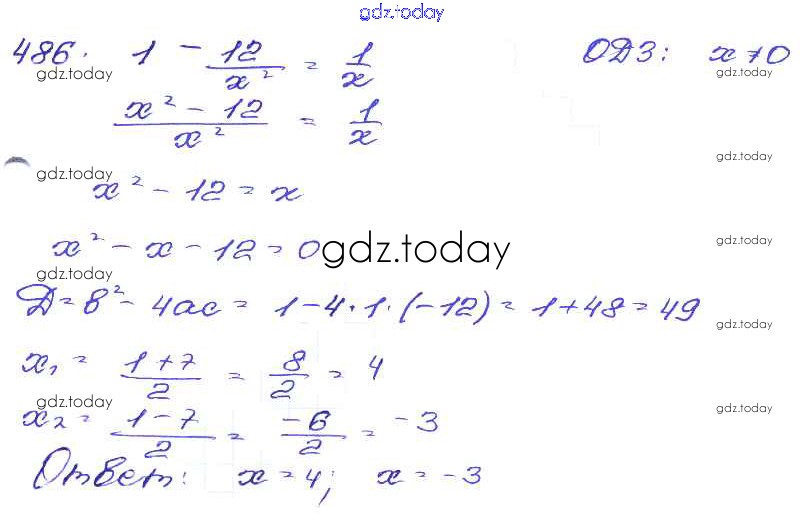 gdz.today
486. 1 - 12/x² = 1/x ОДЗ: x ≠ 0
gdz.today gdz.today
(x² - 12)/x² = 1/x
gdz.today
gdz.today
x² - 12 = x
x² - x - 12 = 0 gdz.today gdz.today
gdz.today
Д = в² - 4ас = 1 - 4 · 1 · (-12) = 1 + 48 = 49
gdz.today
x₁ = (1 + 7)/2 = 8/2 = 4
gdz.today gdz.today
x₂ = (1 - 7)/2 = -6/2 = -3
Ответ: x = 4; x = -3